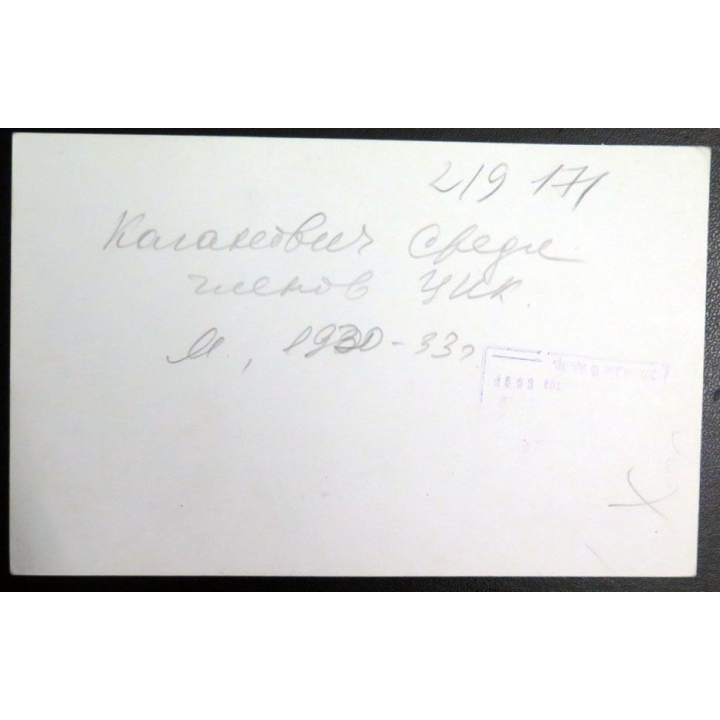 219 171
Каганович среди
членов ЦИК.
М., 1930-33г.